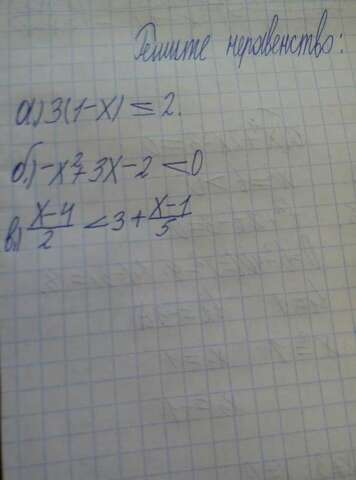 Решите неравенство:
а) 3(1-x) ≤ 2.
б.) -x²+3x-2 <0
в) \frac{x-4}{2} < 3 + \frac{x-1}{5}